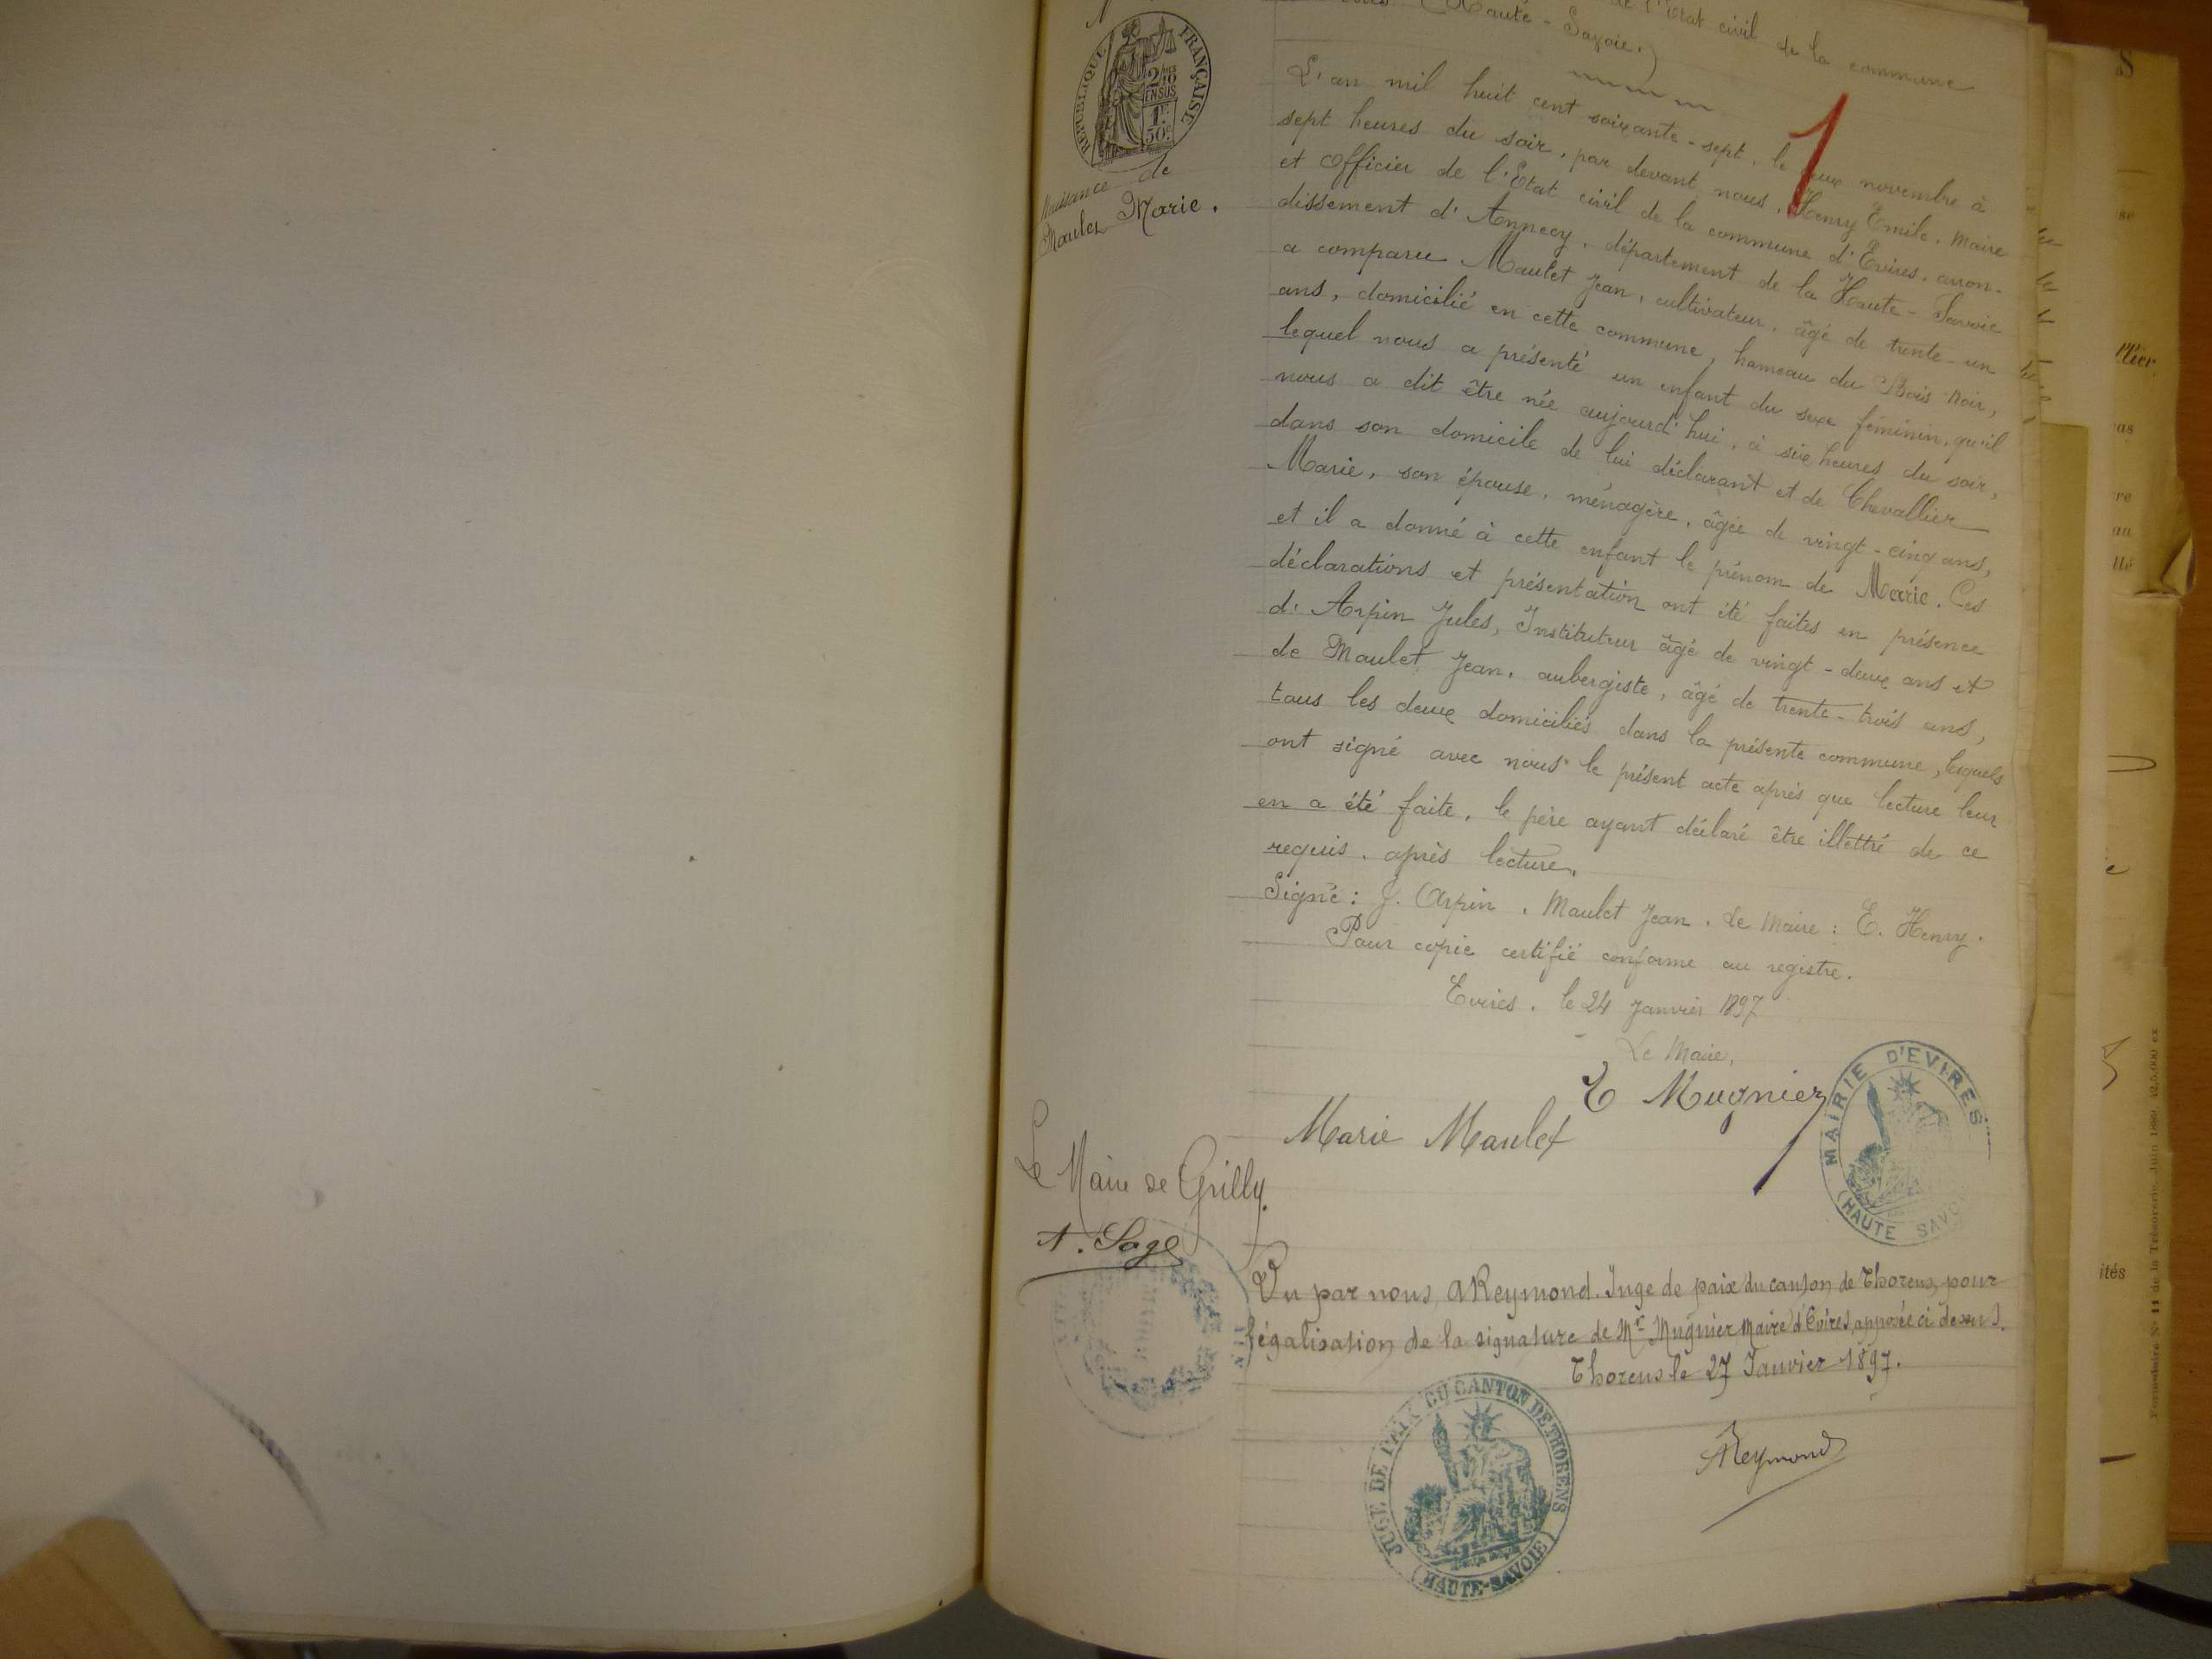 de l'Etat civil de la commune
(Haute-Savoie.)
RÉPUBLIQUE FRANÇAISE
2/10 EN SUS
1F 50c
Naissance de
Maulet Marie.
1
L'an mil huit cent soixante-sept, le deux novembre à
sept heures du soir, par devant nous, Henry Emile, Maire
et Officier de l'Etat civil de la commune d'Evires, arron-
dissement d'Annecy, département de la Haute-Savoie
a comparu Maulet Jean, cultivateur, âgé de trente-un
ans, domicilié en cette commune, hameau du Bois Noir,
lequel nous a présenté un enfant du sexe féminin, qu'il
nous a dit être née aujourd'hui, à six heures du soir,
dans son domicile de lui déclarant et de Chevallier
Marie, son épouse, ménagère, âgée de vingt-cinq ans,
et il a donné à cette enfant le prénom de Marie. Ces
déclarations et présentation ont été faites en présence
d'Arpin Jules, Instituteur âgé de vingt-deux ans et
de Maulet Jean, aubergiste, âgé de trente-trois ans,
tous les deux domiciliés dans la présente commune, lesquels
ont signé avec nous le présent acte après que lecture leur
en a été faite, le père ayant déclaré être illettré de ce
requis, après lecture.
Signé: J. Arpin, Maulet Jean. Le Maire: E. Henry.
Pour copie certifié conforme au registre.
Evires, le 24 Janvier 1897
Le Maire,
E Mugnier
Marie Maulet
MAIRIE D'EVIRES
(HAUTE SAVO
Le Maire de Grilly.
A. Sage
Vu par nous, A Reymond. Juge de paix du canton de Thorens, pour
légalisation de la signature de Mr Mugnier Maire d'Evires, apposée ci dessus.
Thorens le 27 Janvier 1897.
AReymond
JUGE DE PAIX DU CANTON DE THORENS
(HAUTE-SAVOIE)